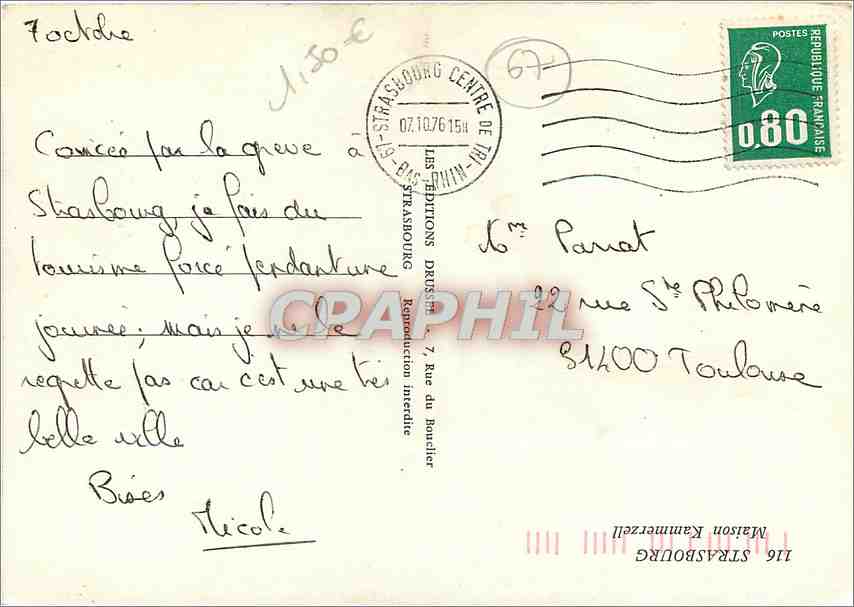 7 octobre
1,50 €
67
67-STRASBOURG CENTRE DE TRI
07.10.76 15H
-BAS-RHIN-
POSTES
REPUBLIQUE FRANÇAISE
0.80
Coincée par la grève à
Strasbourg, je fais du
tourisme forcé pendant une
journée; mais je ne le
regrette pas car c'est une très
belle ville
Bises
Nicole
LES EDITIONS DRUSSEL - 7, Rue du Bouclier
STRASBOURG Reproduction interdite
22 rue Ste Philomène
31400 Toulouse
CPAPHIL
116 STRASBOURG
Maison Kammerzell